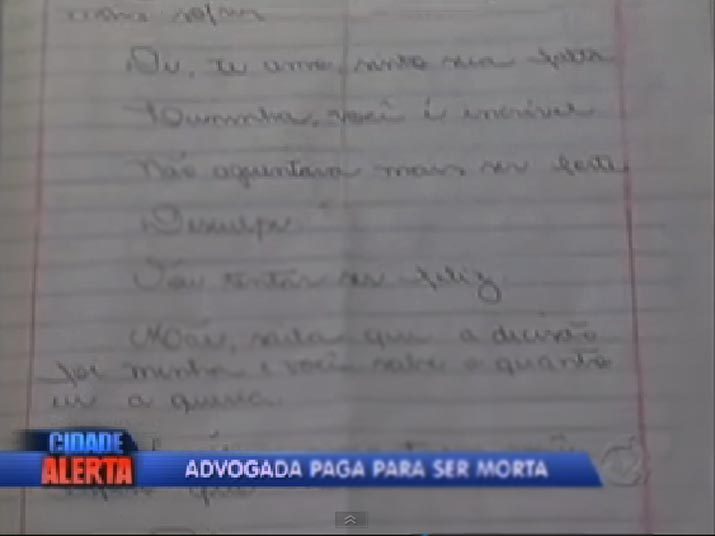 minha
te amo, sinto sua falta
você é incrível
Não aguentava mais ser forte
Desculpe.
Vou tentar ser feliz.
Mãe, saiba que a decisão
foi minha e você sabe o quanto
eu a queria.
CIDADE
ALERTA
ADVOGADA PAGA PARA SER MORTA
que